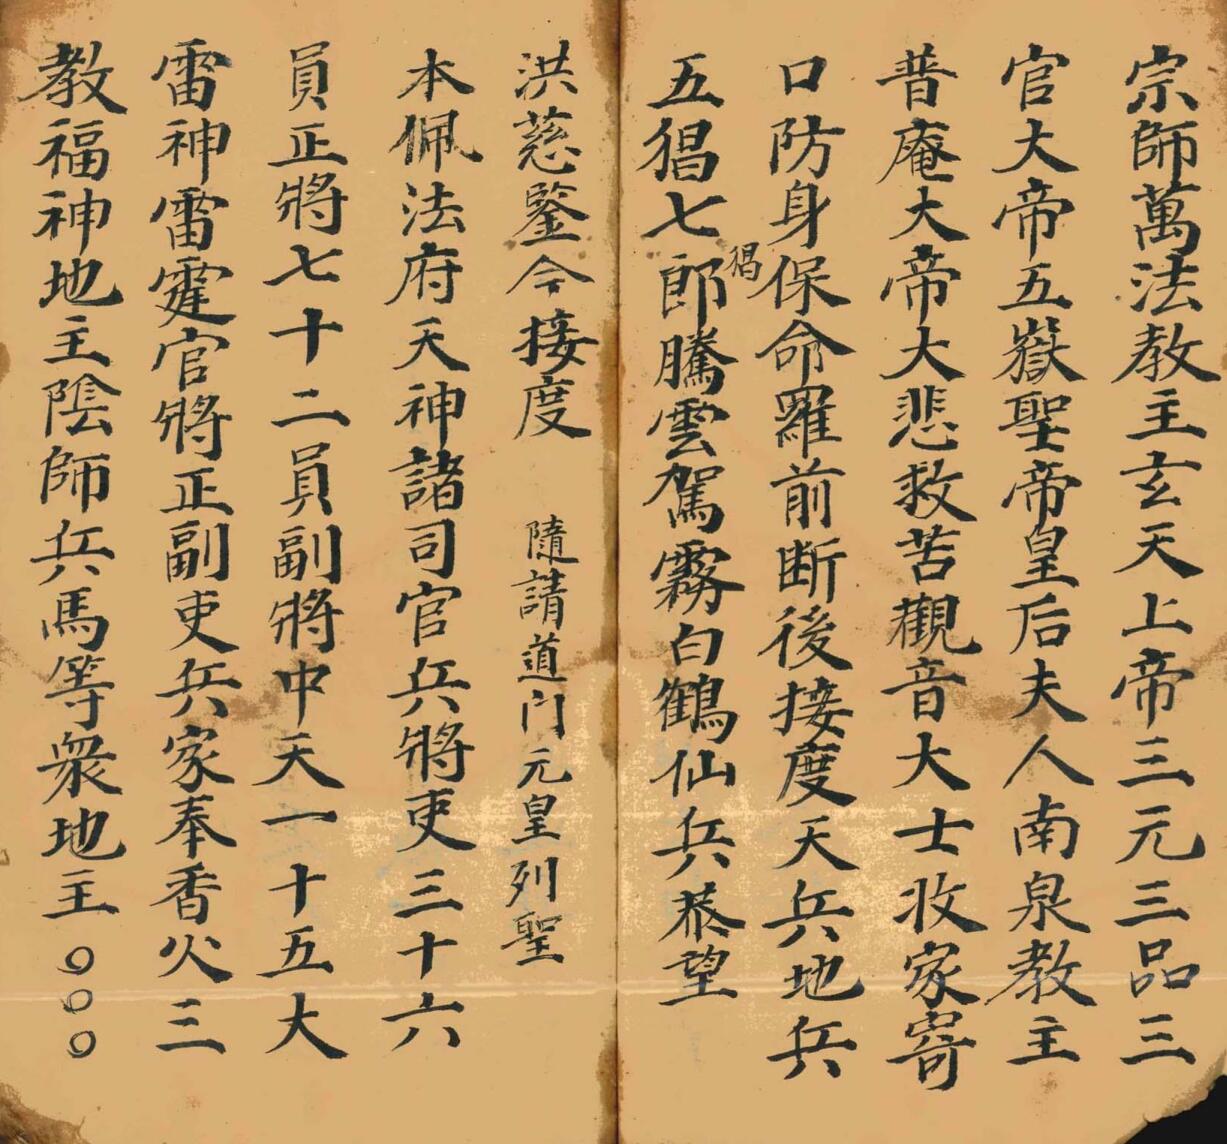 宗師萬法教主玄天上帝三元三品三
官大帝五嶽聖帝皇后夫人南泉教主
普庵大帝大悲救苦觀音大士收家寄
口防身保命羅前断後接度天兵地兵
五猖七郎騰雲駕霧白鶴仙兵恭望
猖
洪慈鑒今接度 隨請道门元皇列聖
本佩法府天神諸司官兵將吏三十六
員正將七十二員副將中天一十五大
雷神雷霆官將正副吏兵家奉香火三
教福神地主陰師兵馬等衆地主